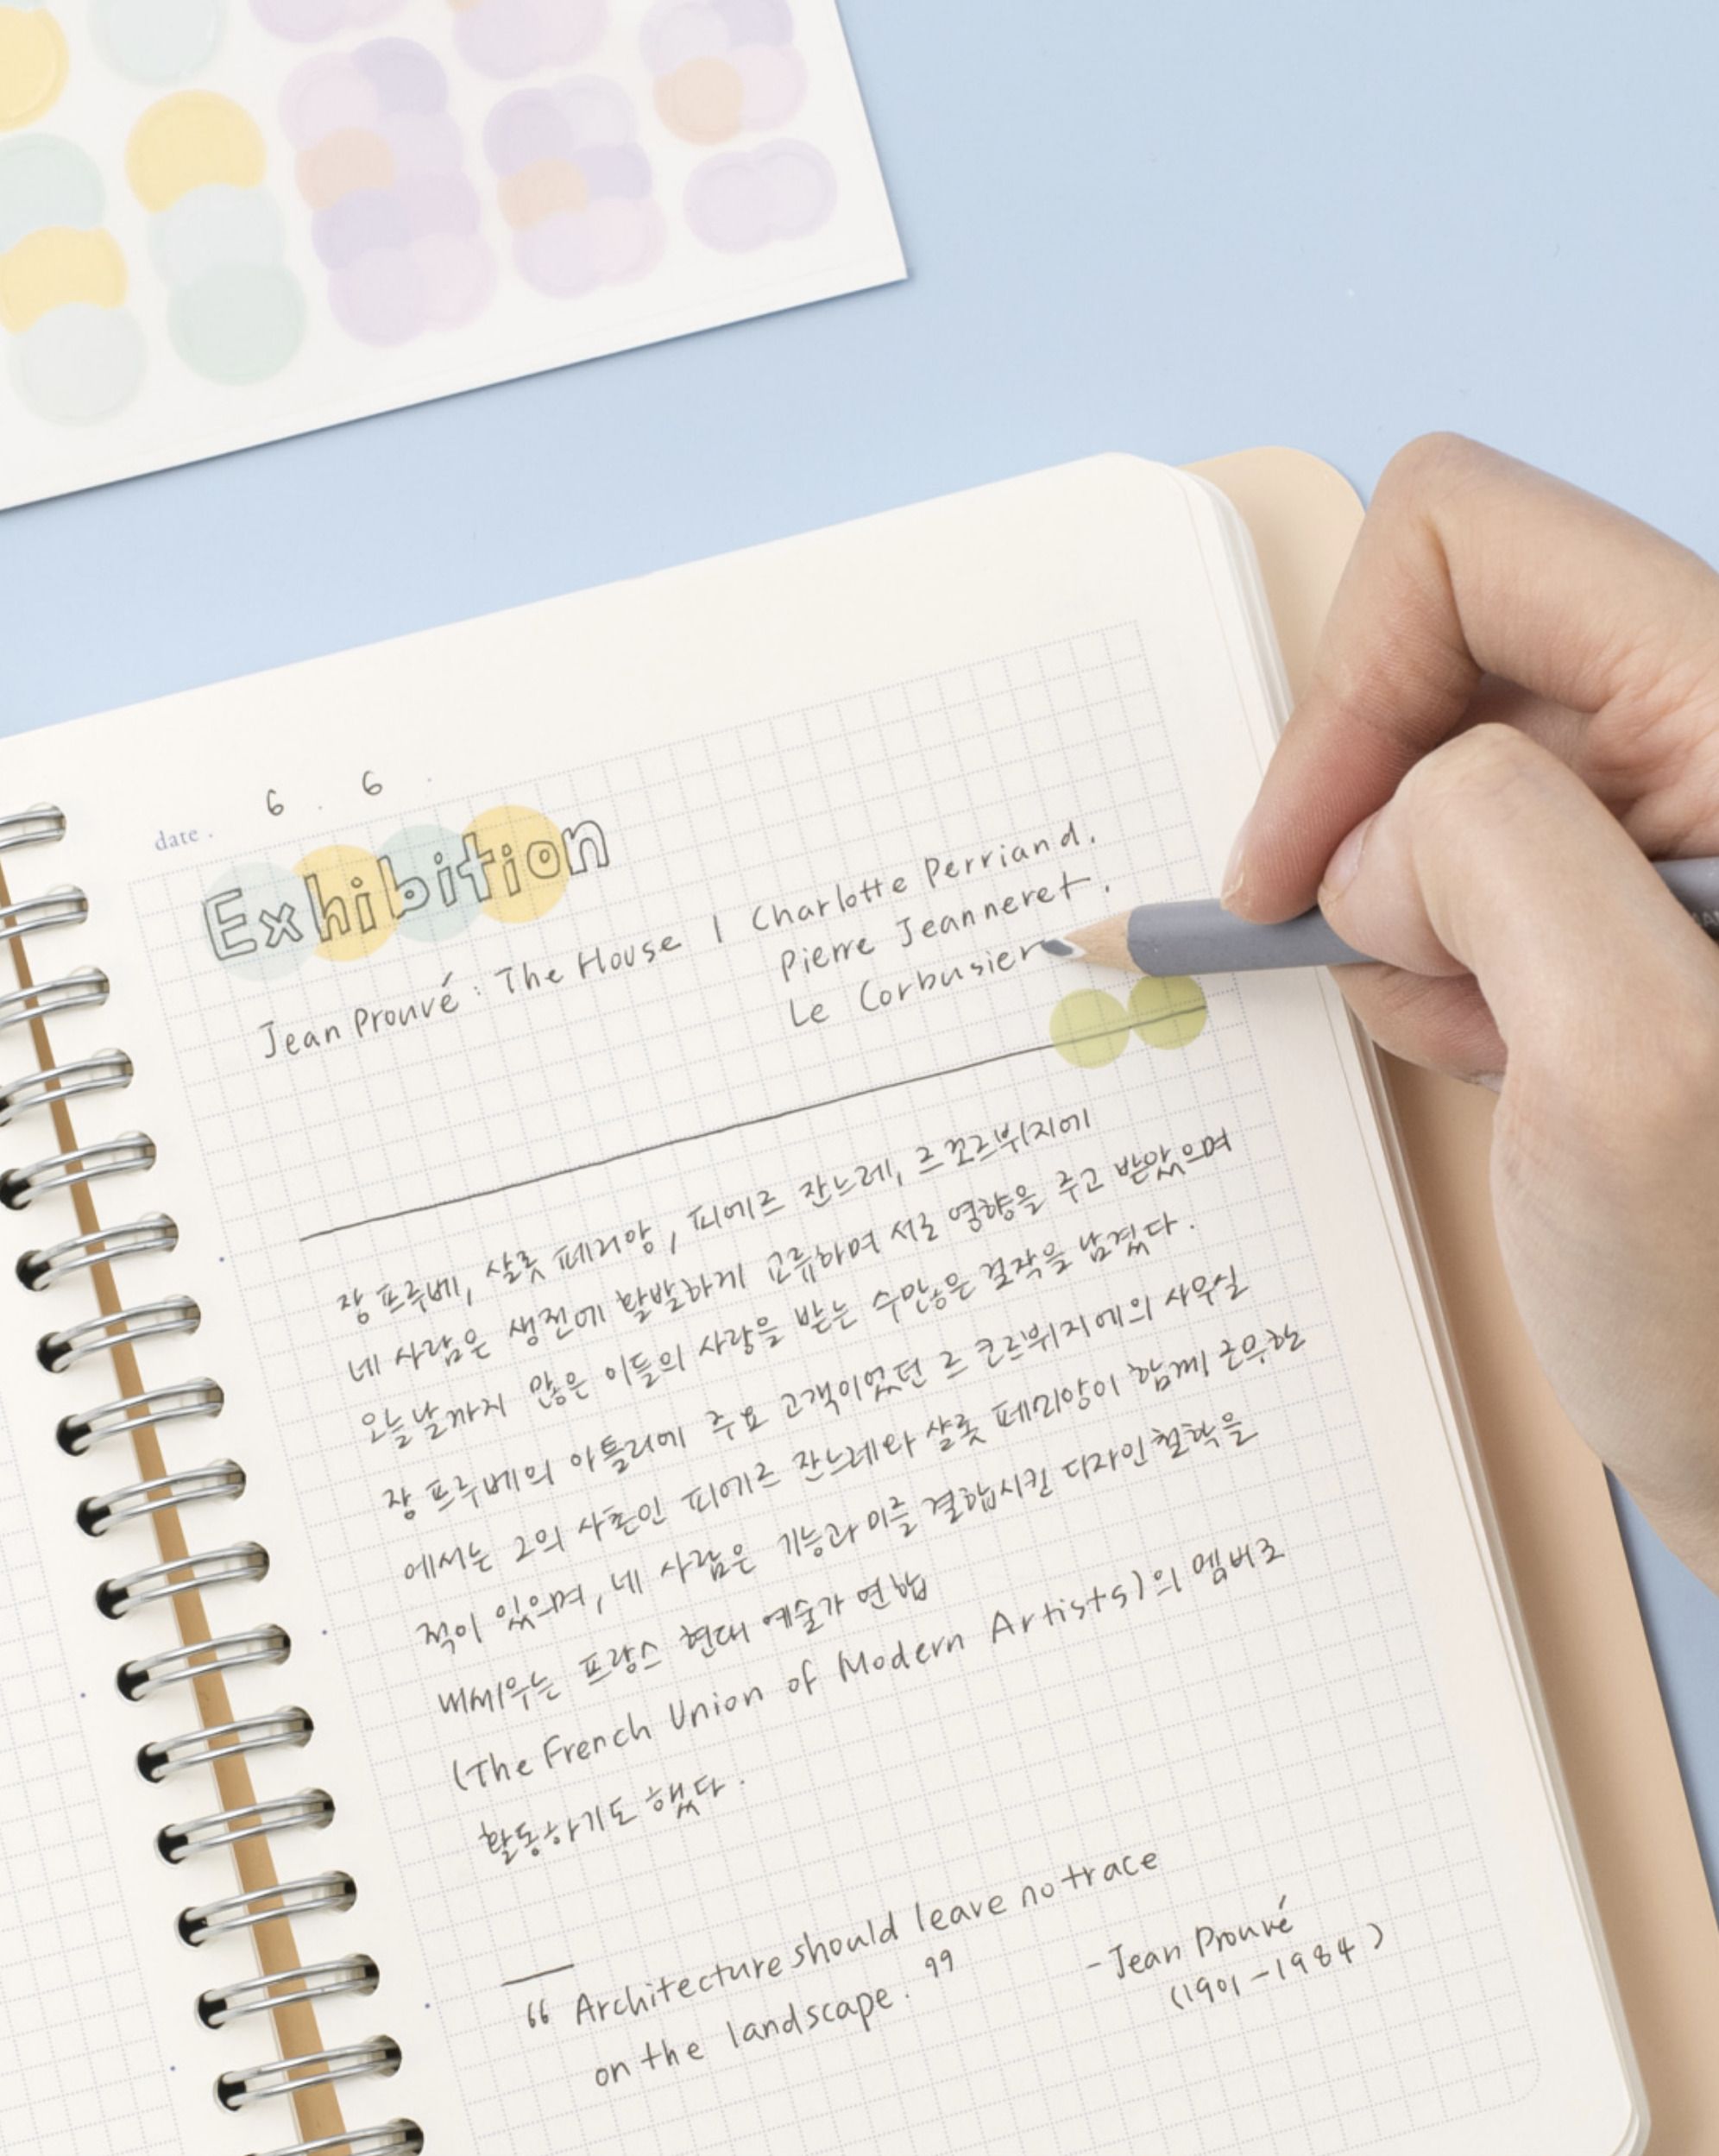 date . 6 . 6 .
Exhibition
Jean Prouvé : The House | Charlotte Perriand.
Pierre Jeanneret.
Le Corbusier
장 프루베, 샬롯 페리앙, 피에르 잔느레, 르꼬르뷔지에
네 사람은 생전에 활발하게 교류하며 서로 영향을 주고 받았으며
오늘날까지 많은 이들의 사랑을 받는 수많은 걸작을 남겼다.
장 프루베의 아틀리에 주요 고객이었던 르 코르뷔지에의 사무실
에서는 그의 사촌인 피에르 잔느레와 샬롯 페리앙이 함께 근무한
적이 있으며, 네 사람은 기능과 미를 결합시킨 디자인 철학을
내세우는 프랑스 현대 예술가 연합
(The French Union of Modern Artists)의 멤버로
활동하기도 했다.
“ Architecture should leave no trace
on the landscape. ”
- Jean Prouvé
(1901 - 1984)